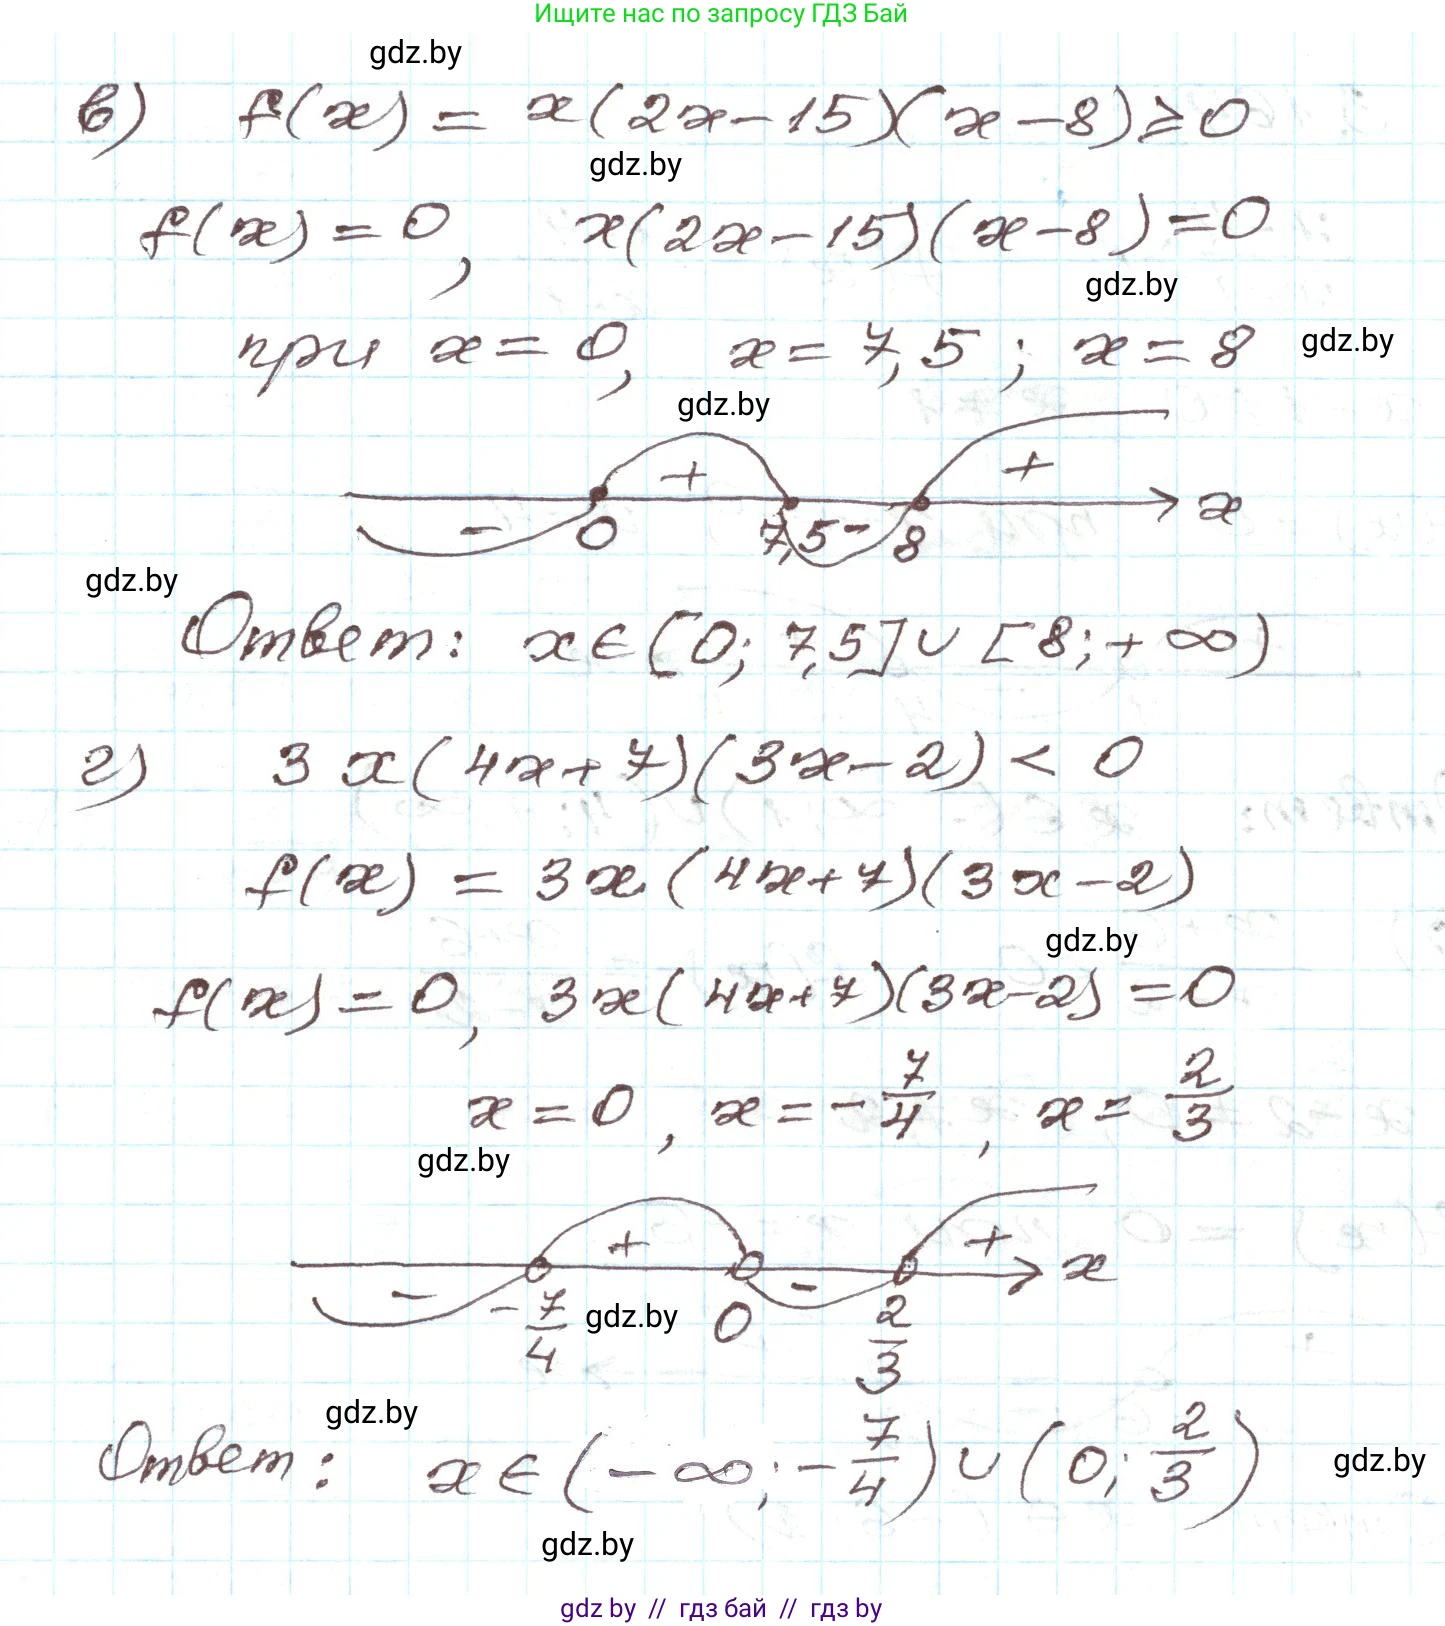 Ищите нас по запросу ГДЗ Бай
gdz.by
в) f(x) = x(2x-15)(x-8)≥0
gdz.by
f(x)=0, x(2x-15)(x-8)=0
gdz.by
при x=0, x=7,5; x=8
gdz.by
gdz.by
+ +
- 0 7,5 - 8 x
gdz.by
Ответ: x∈[0; 7,5]∪[8;+∞)
г) 3x(4x+7)(3x-2)<0
f(x) = 3x·(4x+7)(3x-2)
gdz.by
f(x)=0, 3x(4x+7)(3x-2)=0
x=0, x=-7/4, x=2/3
gdz.by
+ + x
- -7/4 0 - 2/3
gdz.by
gdz.by
Ответ: x∈(-∞;-7/4)∪(0;2/3)
gdz.by
gdz.by
gdz by // гдз бай // гдз by